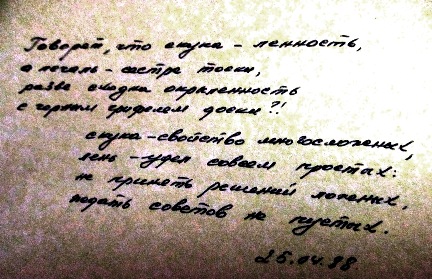 Говорят, что скука - ленность,
а печаль - сестра тоски,
разве сходна окраленность
с горным грифелем доски?!
скука - свойство многосложных,
лень - удел совсем простых:
не принять решений ложных,
подать советов не пустых.
25.04.88